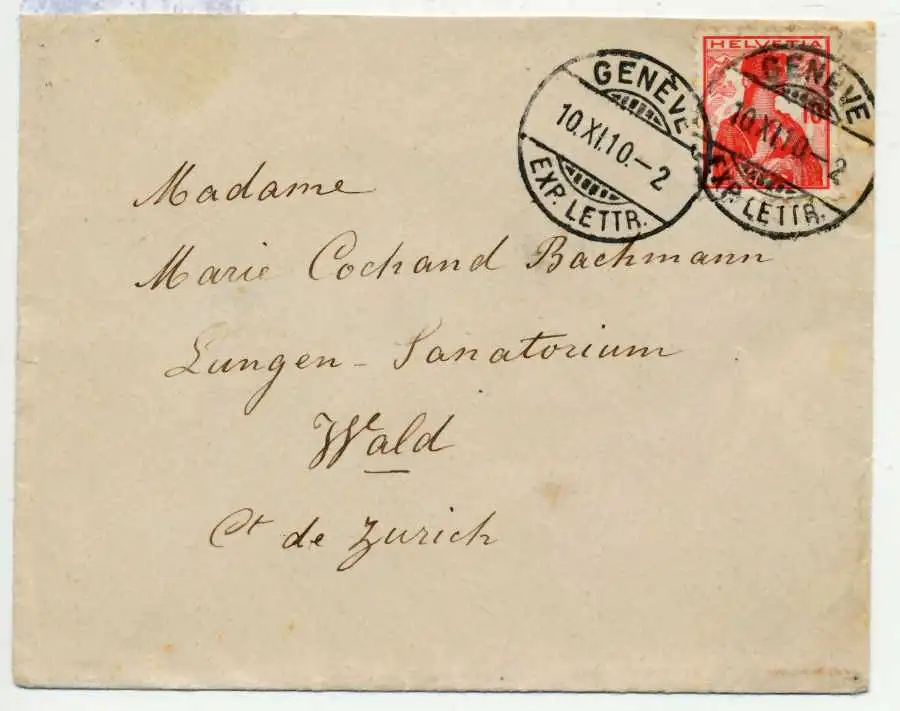 HELVETIA
10
GENÈVE
10.XI.10.–2
EXP. LETTR.
GENÈVE
10.XI.10–2
EXP. LETTR.
Madame
Marie Cochand Bachmann
Lungen-Sanatorium
Wald
Ct de Zurich